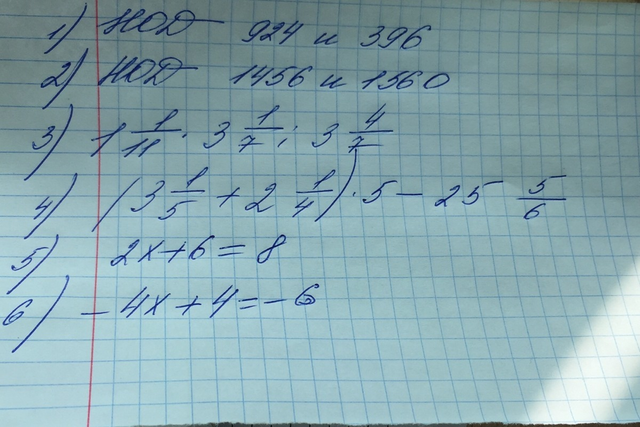 1) НОД 924 и 396
2) НОД 1456 и 1560
3) 1 1/11 · 3 1/7 : 3 4/7
4) (3 1/5 + 2 1/4) · 5 - 25 5/6
5) 2x+6=8
6) -4x+4=-6